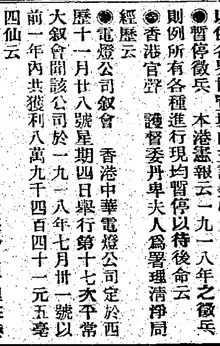 ◉暫停徵兵　本港憲報云一九一八年之徵兵
則例所有各種進行現均暫停以待後命云
◉香港官聲　護督委丹卑夫人爲署理清淨局
經歷云
◉電燈公司叙會　香港中華電燈公司定於西
歷十一月廿八號星期四日舉行第十七次平常
大叙會聞該公司於一九一八年七月卅一號以
前一年內共獲利八萬九千四百四十一元五毫
四仙云